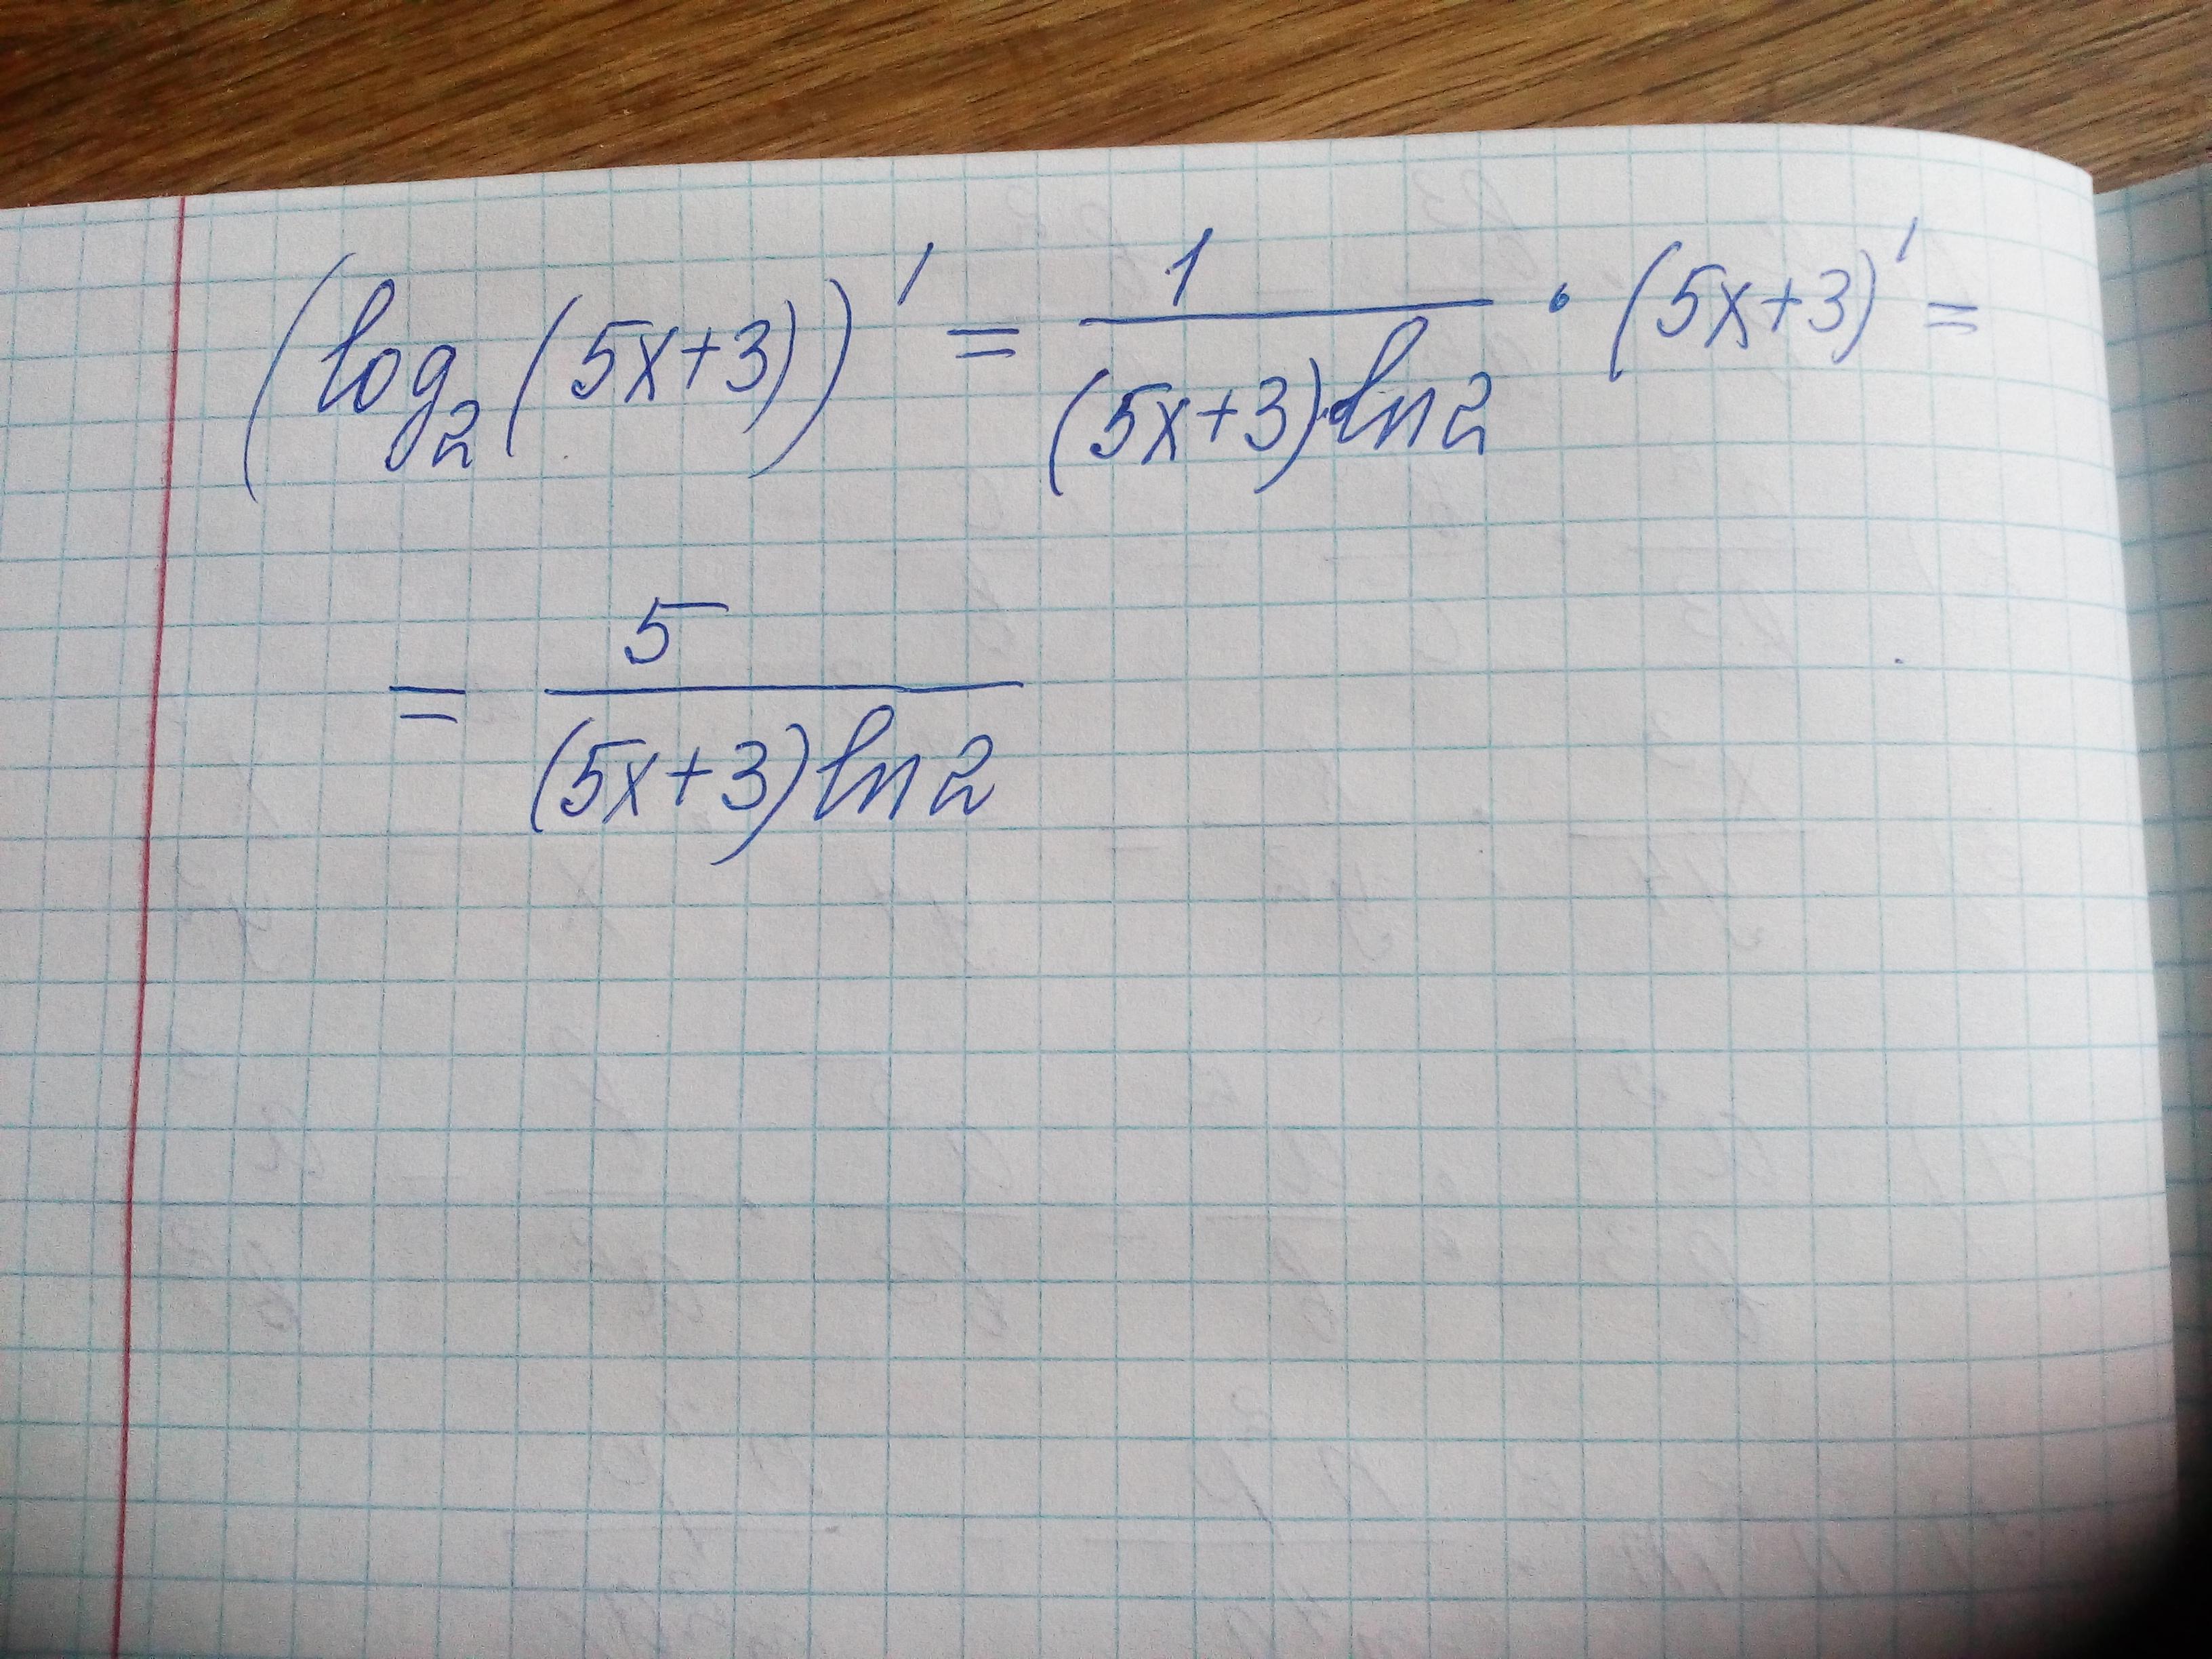 (log₂(5x+3))' = 1/((5x+3)·ln2) · (5x+3)' =
= 5/((5x+3)ln2)